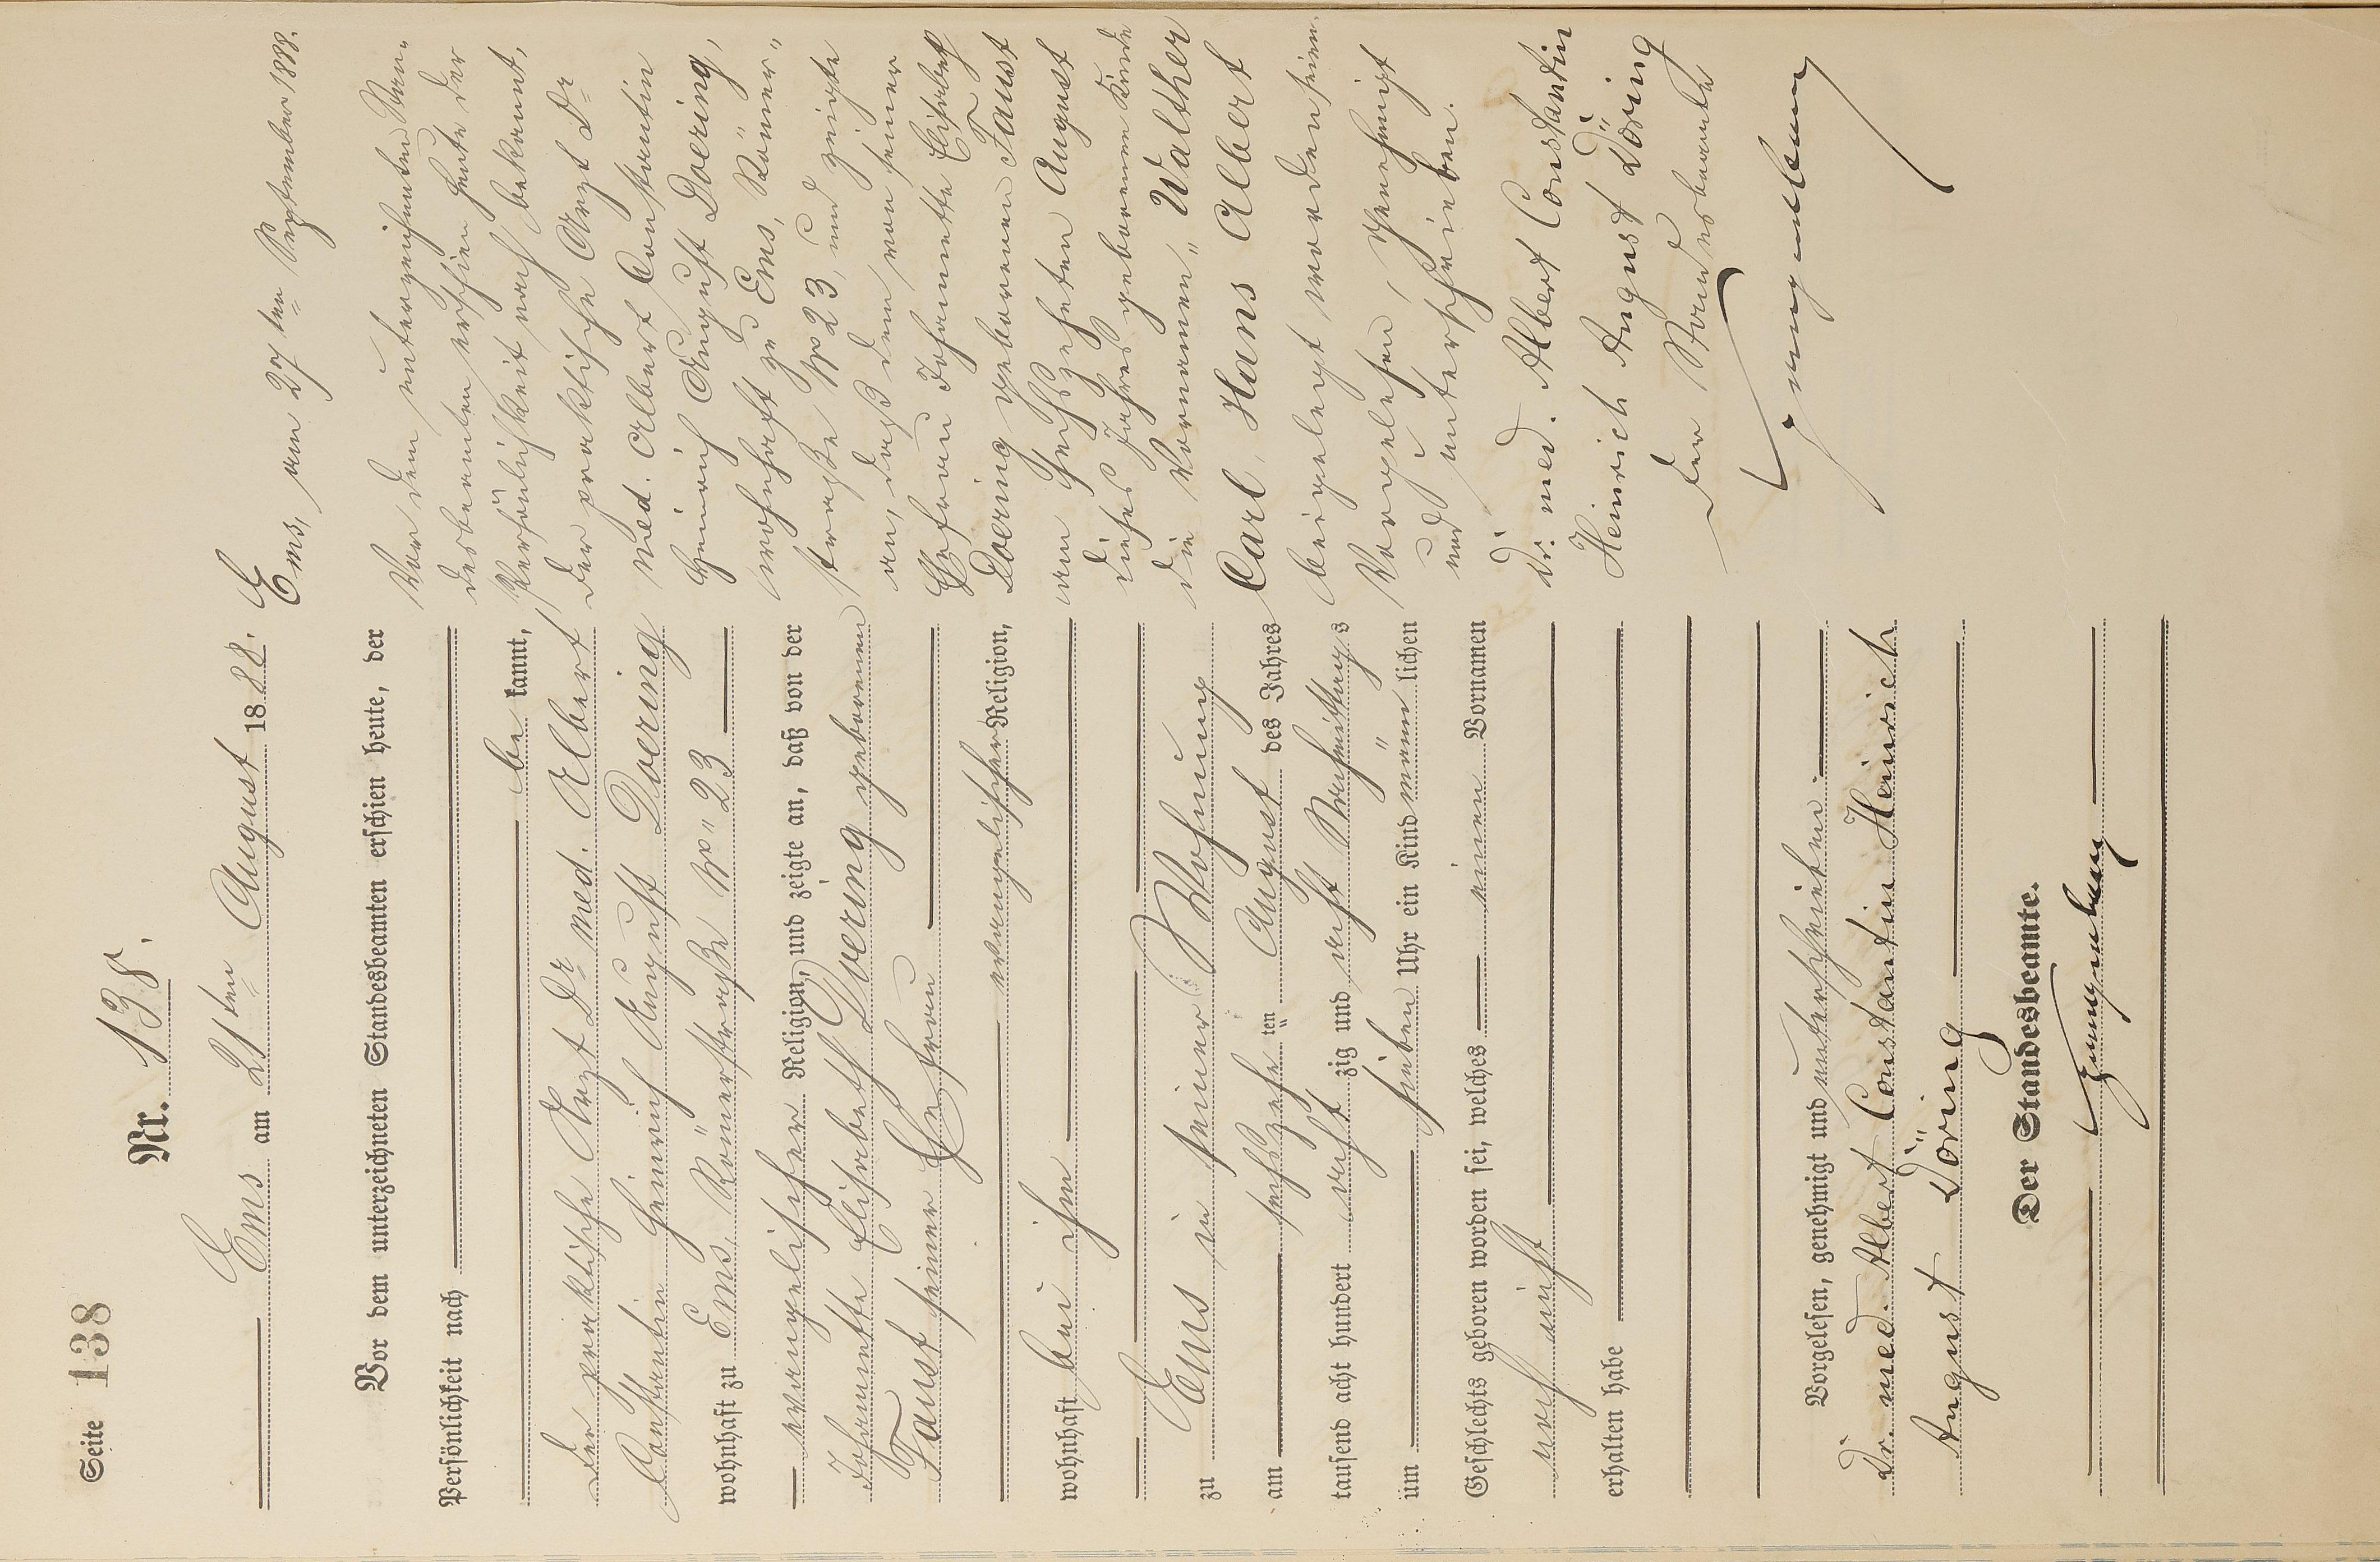 Seite 138
Nr. 138.
Ems am 21ten August 1888.
Vor dem unterzeichneten Standesbeamten erschien heute, der
Persönlichkeit nach
be kannt,
der praktische Arzt Dr med. Albert
Constantin Heinrich August Doering
wohnhaft zu Ems, Römerstraße No 23
evangelischer Religion, und zeigte an, daß von der
Johannette Elisabeth Doering geborenen
Faust seiner Ehefrau
evangelischer Religion,
wohnhaft bei ihm
zu Ems in seiner Wohnung
am sechszehn ten August des Jahres
tausend acht hundert acht zig und acht Nachmittags
um sieben Uhr ein Kind männ lichen
Geschlechts geboren worden sei, welches einen Vornamen
noch nicht
erhalten habe
Vorgelesen, genehmigt und unterschrieben.
Dr. med. Albert Constantin Heinrich
August Döring
Der Standesbeamte.
Ems, am 27ten September 1888.
Vor dem unterzeichneten Stan-
desbeamten erschien heute der
Persönlichkeit nach bekannt,
der praktische Arzt Dr
med. Albert Constantin
Heinrich August Doering,
wohnhaft zu Ems, Römer-
straße No 23, und zeigte
an, daß dem von seiner
Ehefrau Johannette Elisabeth
Doering geborenen Faust
am sechszehnten August
dieses Jahres geborenen Kinde
die Vornamen „Walther
Carl, Hans Albert
beigelegt worden seien.
Vorgelesen, genehmigt
und unterschrieben.
Dr. med. Albert Constantin
Heinrich August Döring
Der Standesbeamte